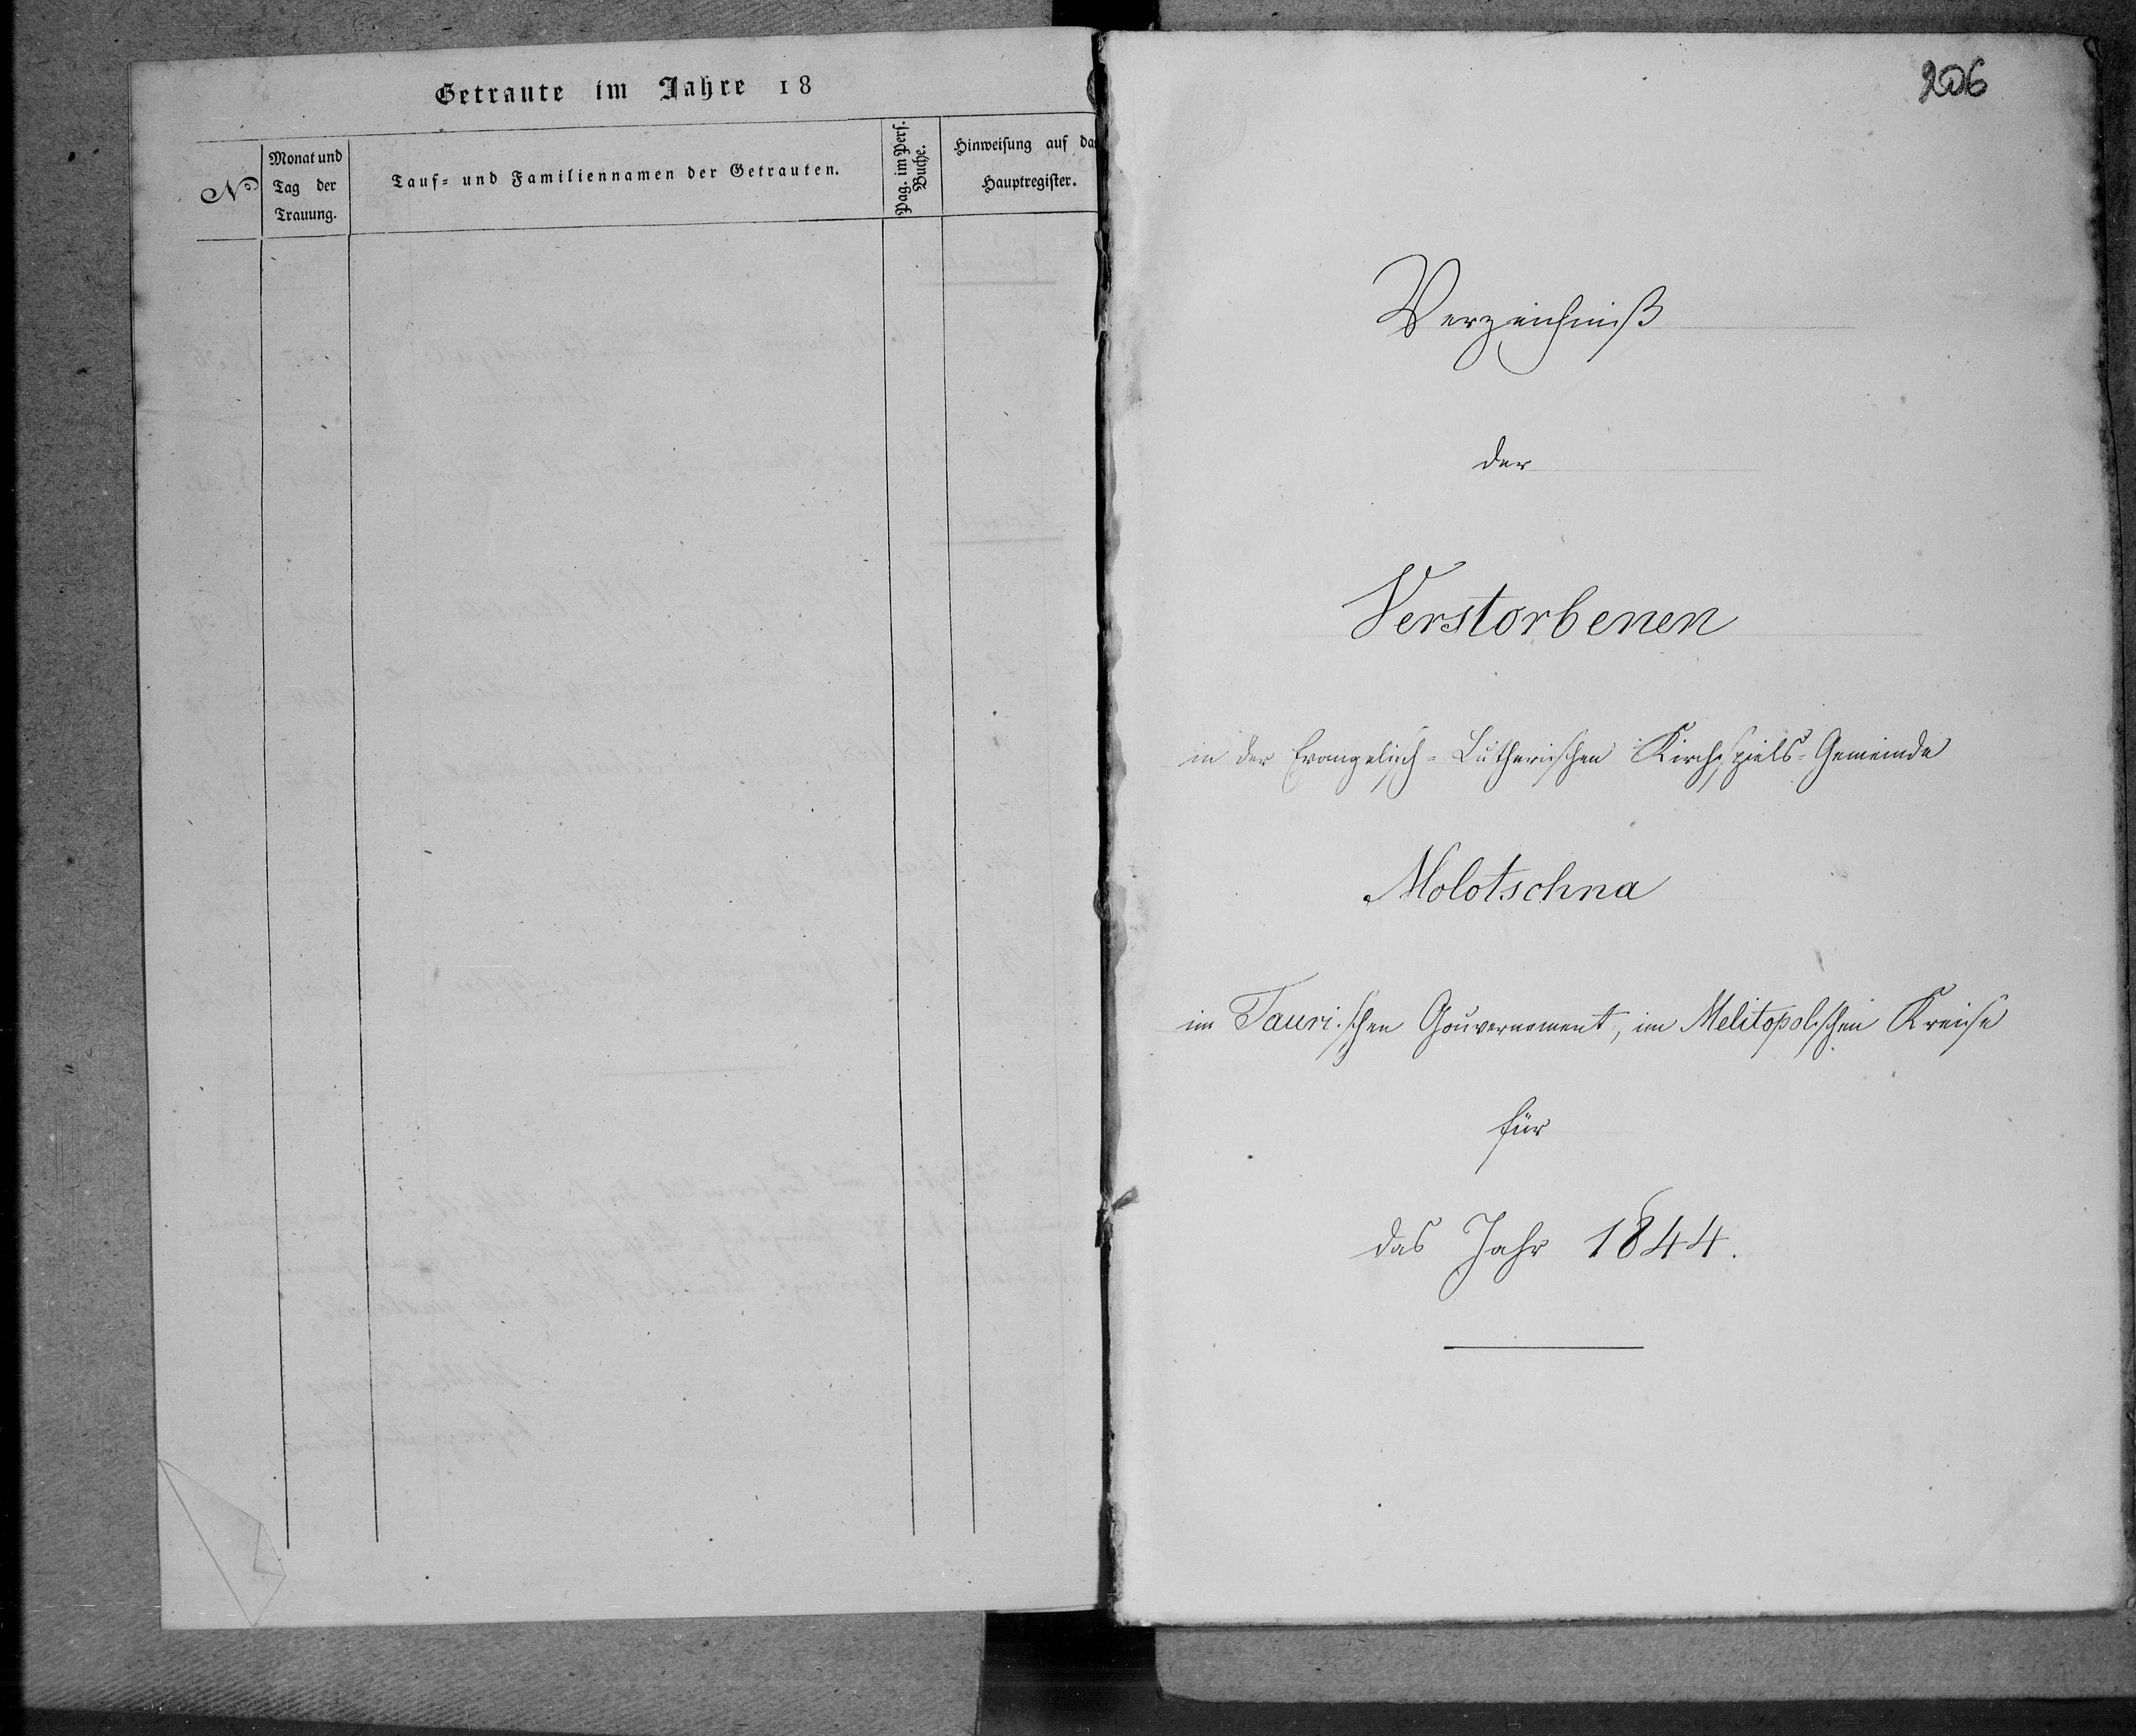 Getraute im Jahre 18
№
Monat und
Tag der
Trauung.
Tauf- und Familiennamen der Getrauten.
Pag. im Pers.
Buche.
Hinweisung auf das
Hauptregister.
206
Verzeichniß
der
Verstorbenen
in der Evangelisch-Lutherischen Kirchspiels-Gemeinde
Molotschna
im Taurischen Gouvernement, im Melitopolschen Kreise
für
das Jahr 1844.